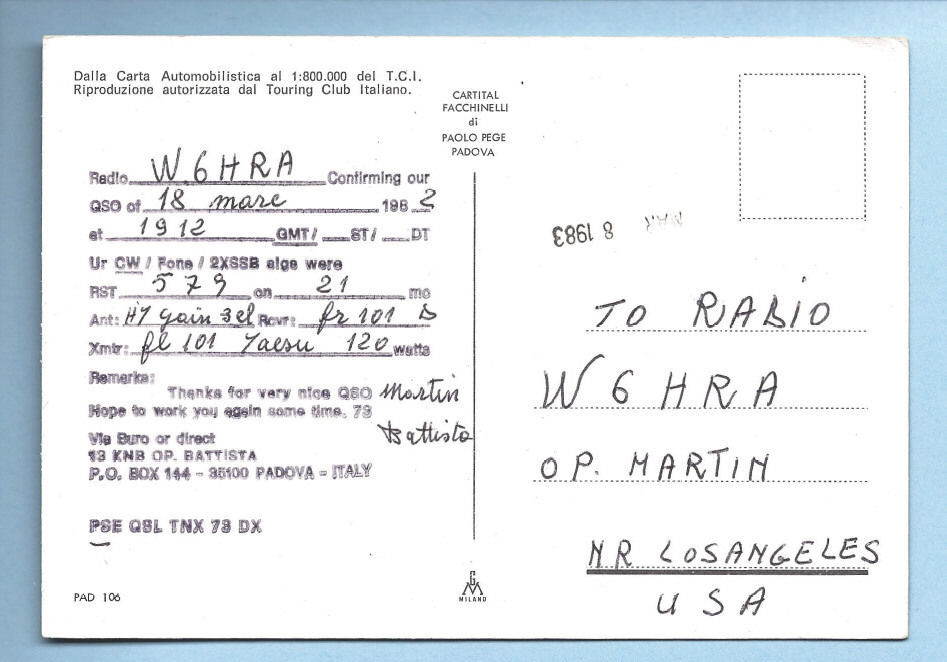 Dalla Carta Automobilistica al 1:800.000 del T.C.I.
Riproduzione autorizzata dal Touring Club Italiano.
CARTITAL
FACCHINELLI
di
PAOLO PEGE
PADOVA
Radio W6HRA Confirming our
QSO of 18 marc 1982
at 1912 GMT/ ST/ DT
Ur CW / Fone / 2XSSB sigs were
RST 579 on 21 mc
Ant: HY gain 3el Rcvr: fr 101 D
Xmtr: fl 101 Yaesu 120 watts
Remarks:
Thanks for very nice QSO Martin
Hope to work you again some time. 73
Battista
Via Buro or direct
I3 KNB OP. BATTISTA
P.O. BOX 144 - 35100 PADOVA - ITALY
PSE QSL TNX 73 DX
PAD 106
GM
MILANO
MAR 8 1983
TO RADIO
W6HRA
OP. MARTIN
NR LOSANGELES
USA